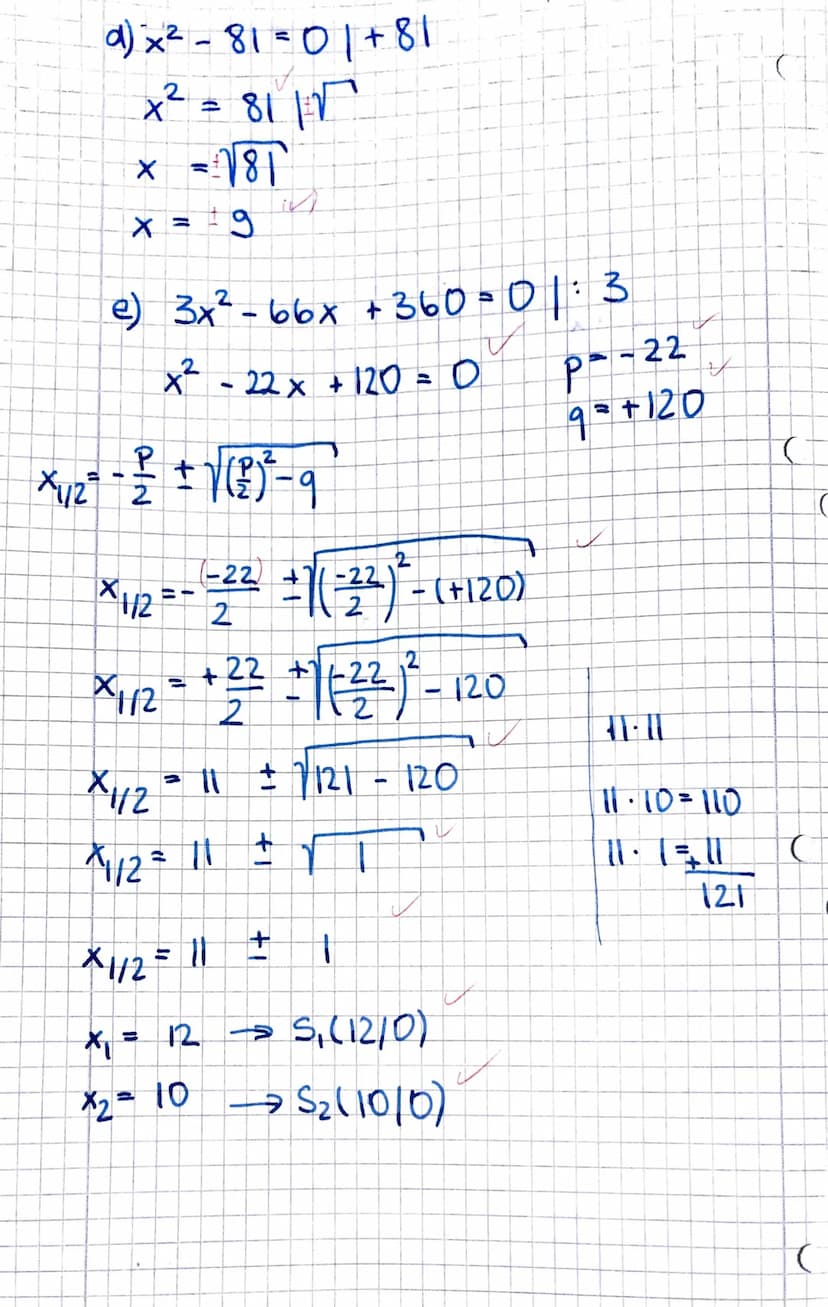 d) x² - 81 = 0 | + 81
x² = 81 | ±√
x = ±√81
x = ± 9
e) 3x² - 66x + 360 = 0 | : 3
x² - 22x + 120 = 0
p = -22
q = +120
x₁/₂ = - p/2 ± √((p/2)² - q)
x₁/₂ = - (-22)/2 ± √((-22/2)² - (+120))
x₁/₂ = + 22/2 ± √((-22/2)² - 120)
x₁/₂ = 11 ± √(121 - 120)
x₁/₂ = 11 ± √1
x₁/₂ = 11 ± 1
x₁ = 12 → S₁(12/0)
x₂ = 10 → S₂(10/0)
11 · 11
11 · 10 = 110
11 · 1 = + 11
121